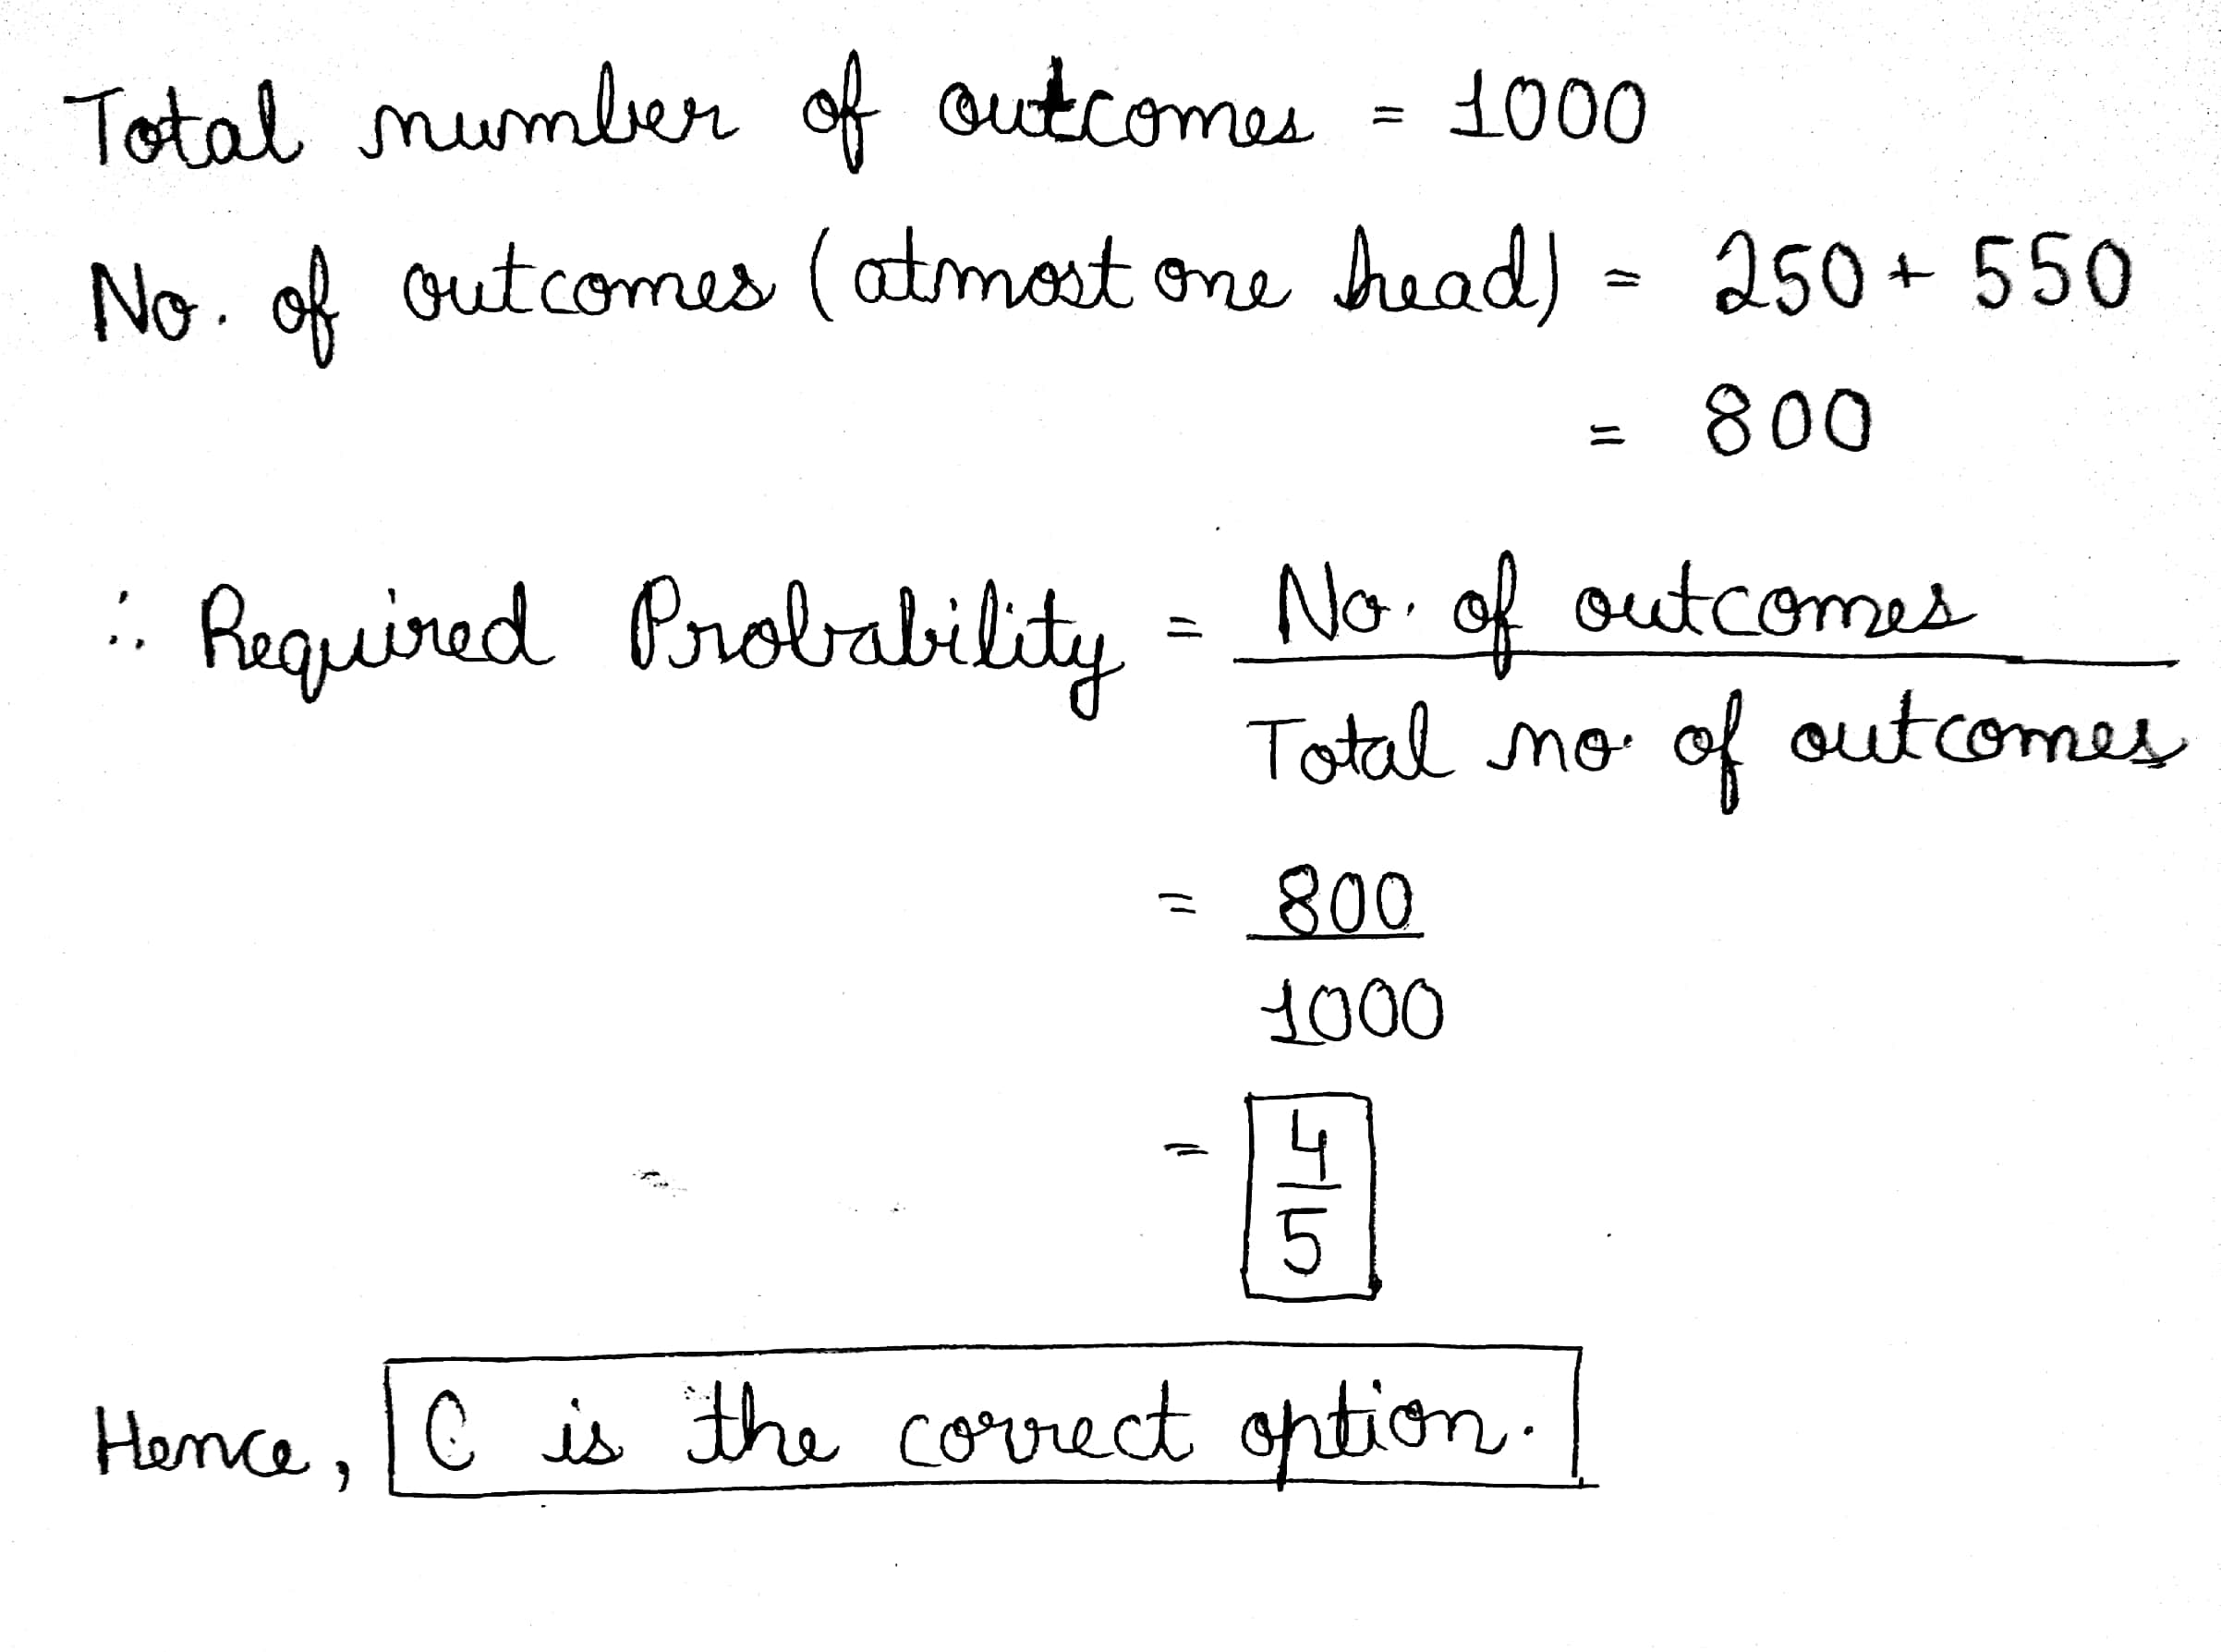 Total number of outcomes = 1000
No. of outcomes (atmost one head) = 250 + 550
= 800
∴ Required Probability = No. of outcomes / Total no. of outcomes
= 800 / 1000
= 4 / 5
Hence, C is the correct option.